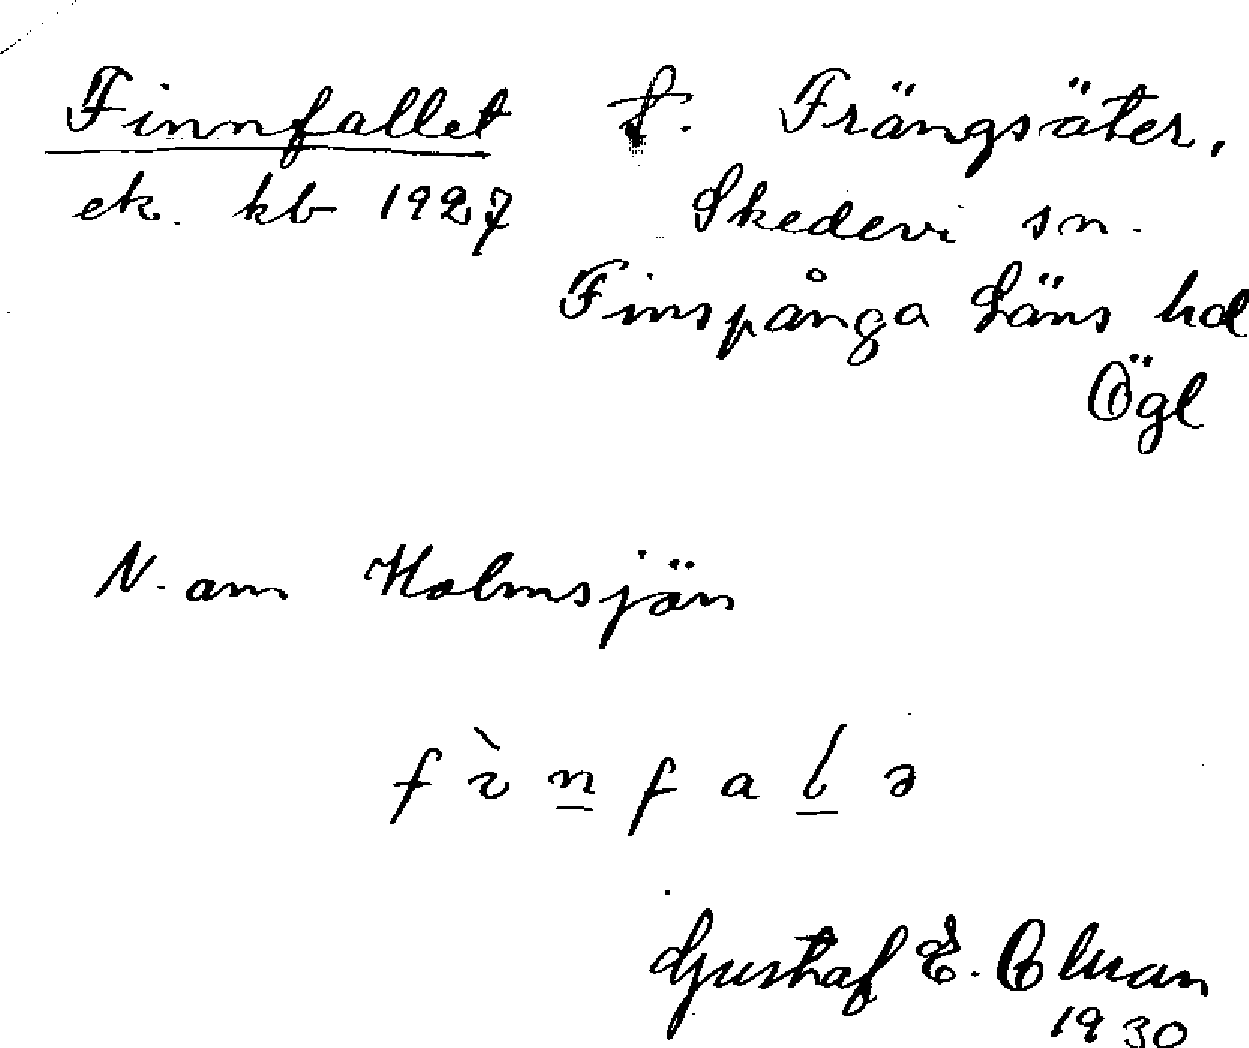 Finnfallet t. Frängsäter,
ek. kb 1927 Skedevi sn.
Finspånga Läns hd
Ögl
N. om Holmsjön
fìnfalə
Gustaf E.
1930